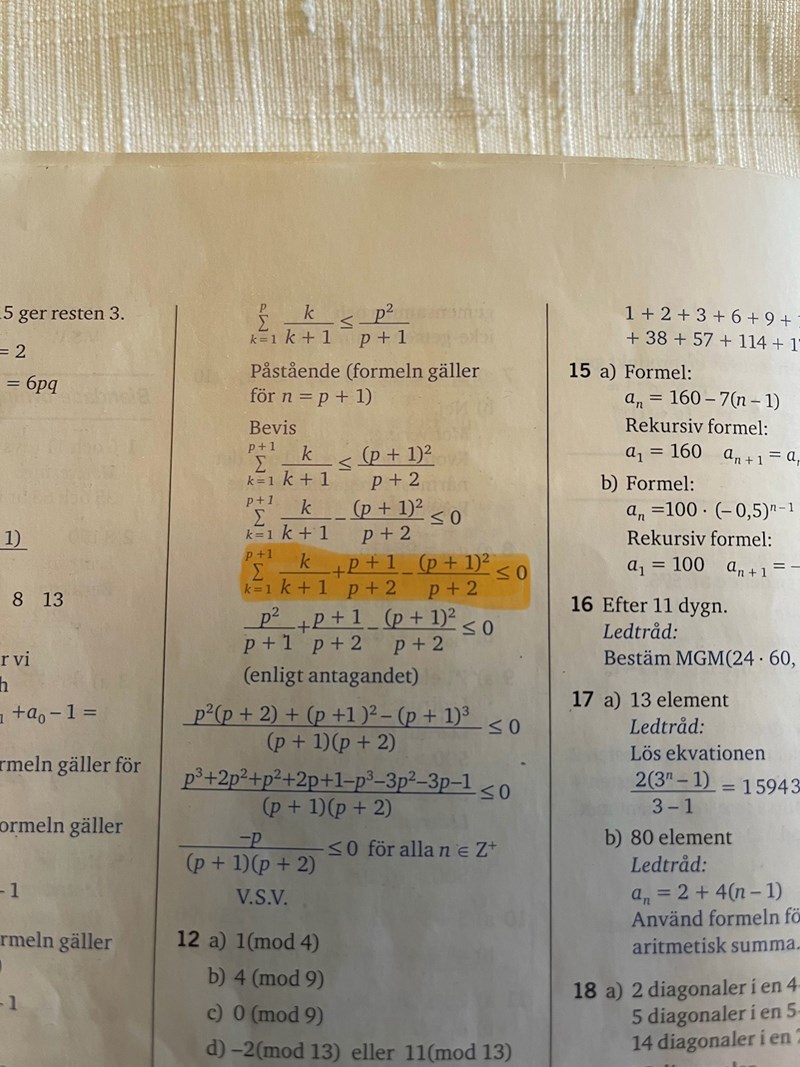 5 ger resten 3.
= 2
= 6pq
1)
8 13
r vi
h
₁ +a₀ – 1 =
rmeln gäller för
ormeln gäller
– 1
rmeln gäller
)
– 1
p
Σ k/(k + 1) ≤ p²/(p + 1)
k = 1
Påstående (formeln gäller
för n = p + 1)
Bevis
p + 1
Σ k/(k + 1) ≤ (p + 1)²/(p + 2)
k = 1
p + 1
Σ k/(k + 1) – (p + 1)²/(p + 2) ≤ 0
k = 1
p + 1
Σ k/(k + 1) + (p + 1)/(p + 2) – (p + 1)²/(p + 2) ≤ 0
k = 1
p²/(p + 1) + (p + 1)/(p + 2) – (p + 1)²/(p + 2) ≤ 0
(enligt antagandet)
(p²(p + 2) + (p +1 )² – (p + 1)³)/((p + 1)(p + 2)) ≤ 0
(p³+2p²+p²+2p+1–p³–3p²–3p–1)/((p + 1)(p + 2)) ≤ 0
–p/((p + 1)(p + 2)) ≤ 0 för alla n ∈ Z⁺
V.S.V.
12 a) 1(mod 4)
b) 4 (mod 9)
c) 0 (mod 9)
d) –2(mod 13) eller 11(mod 13)
1 + 2 + 3 + 6 + 9 +
+ 38 + 57 + 114 + 1
15 a) Formel:
aₙ = 160 – 7(n – 1)
Rekursiv formel:
a₁ = 160 aₙ₊₁ = a
b) Formel:
aₙ =100 · (– 0,5)ⁿ⁻¹
Rekursiv formel:
a₁ = 100 aₙ₊₁ = –
16 Efter 11 dygn.
Ledtråd:
Bestäm MGM(24 · 60,
17 a) 13 element
Ledtråd:
Lös ekvationen
2(3ⁿ – 1)/(3 – 1) = 1 5943
b) 80 element
Ledtråd:
aₙ = 2 + 4(n – 1)
Använd formeln fö
aritmetisk summa.
18 a) 2 diagonaler i en 4-
5 diagonaler i en 5-
14 diagonaler i en